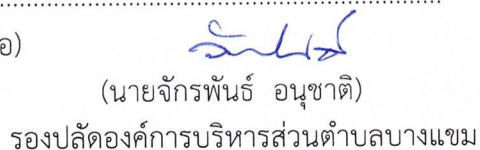 อ)
(นายจักรพันธ์ อนุชาติ)
รองปลัดองค์การบริหารส่วนตำบลบางแขม